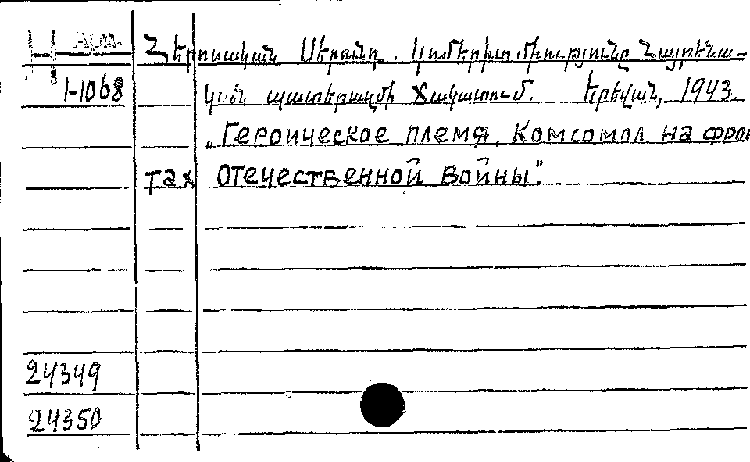 Հերոսական Սերունդ. Կոմերիտմիությունը Հայրենա-
1-1068 կան պատերազմի ճակատում. Երևան, 1943
„Героическое племя. Комсомол на фрон
тах Отечественной войны".
24349
24350